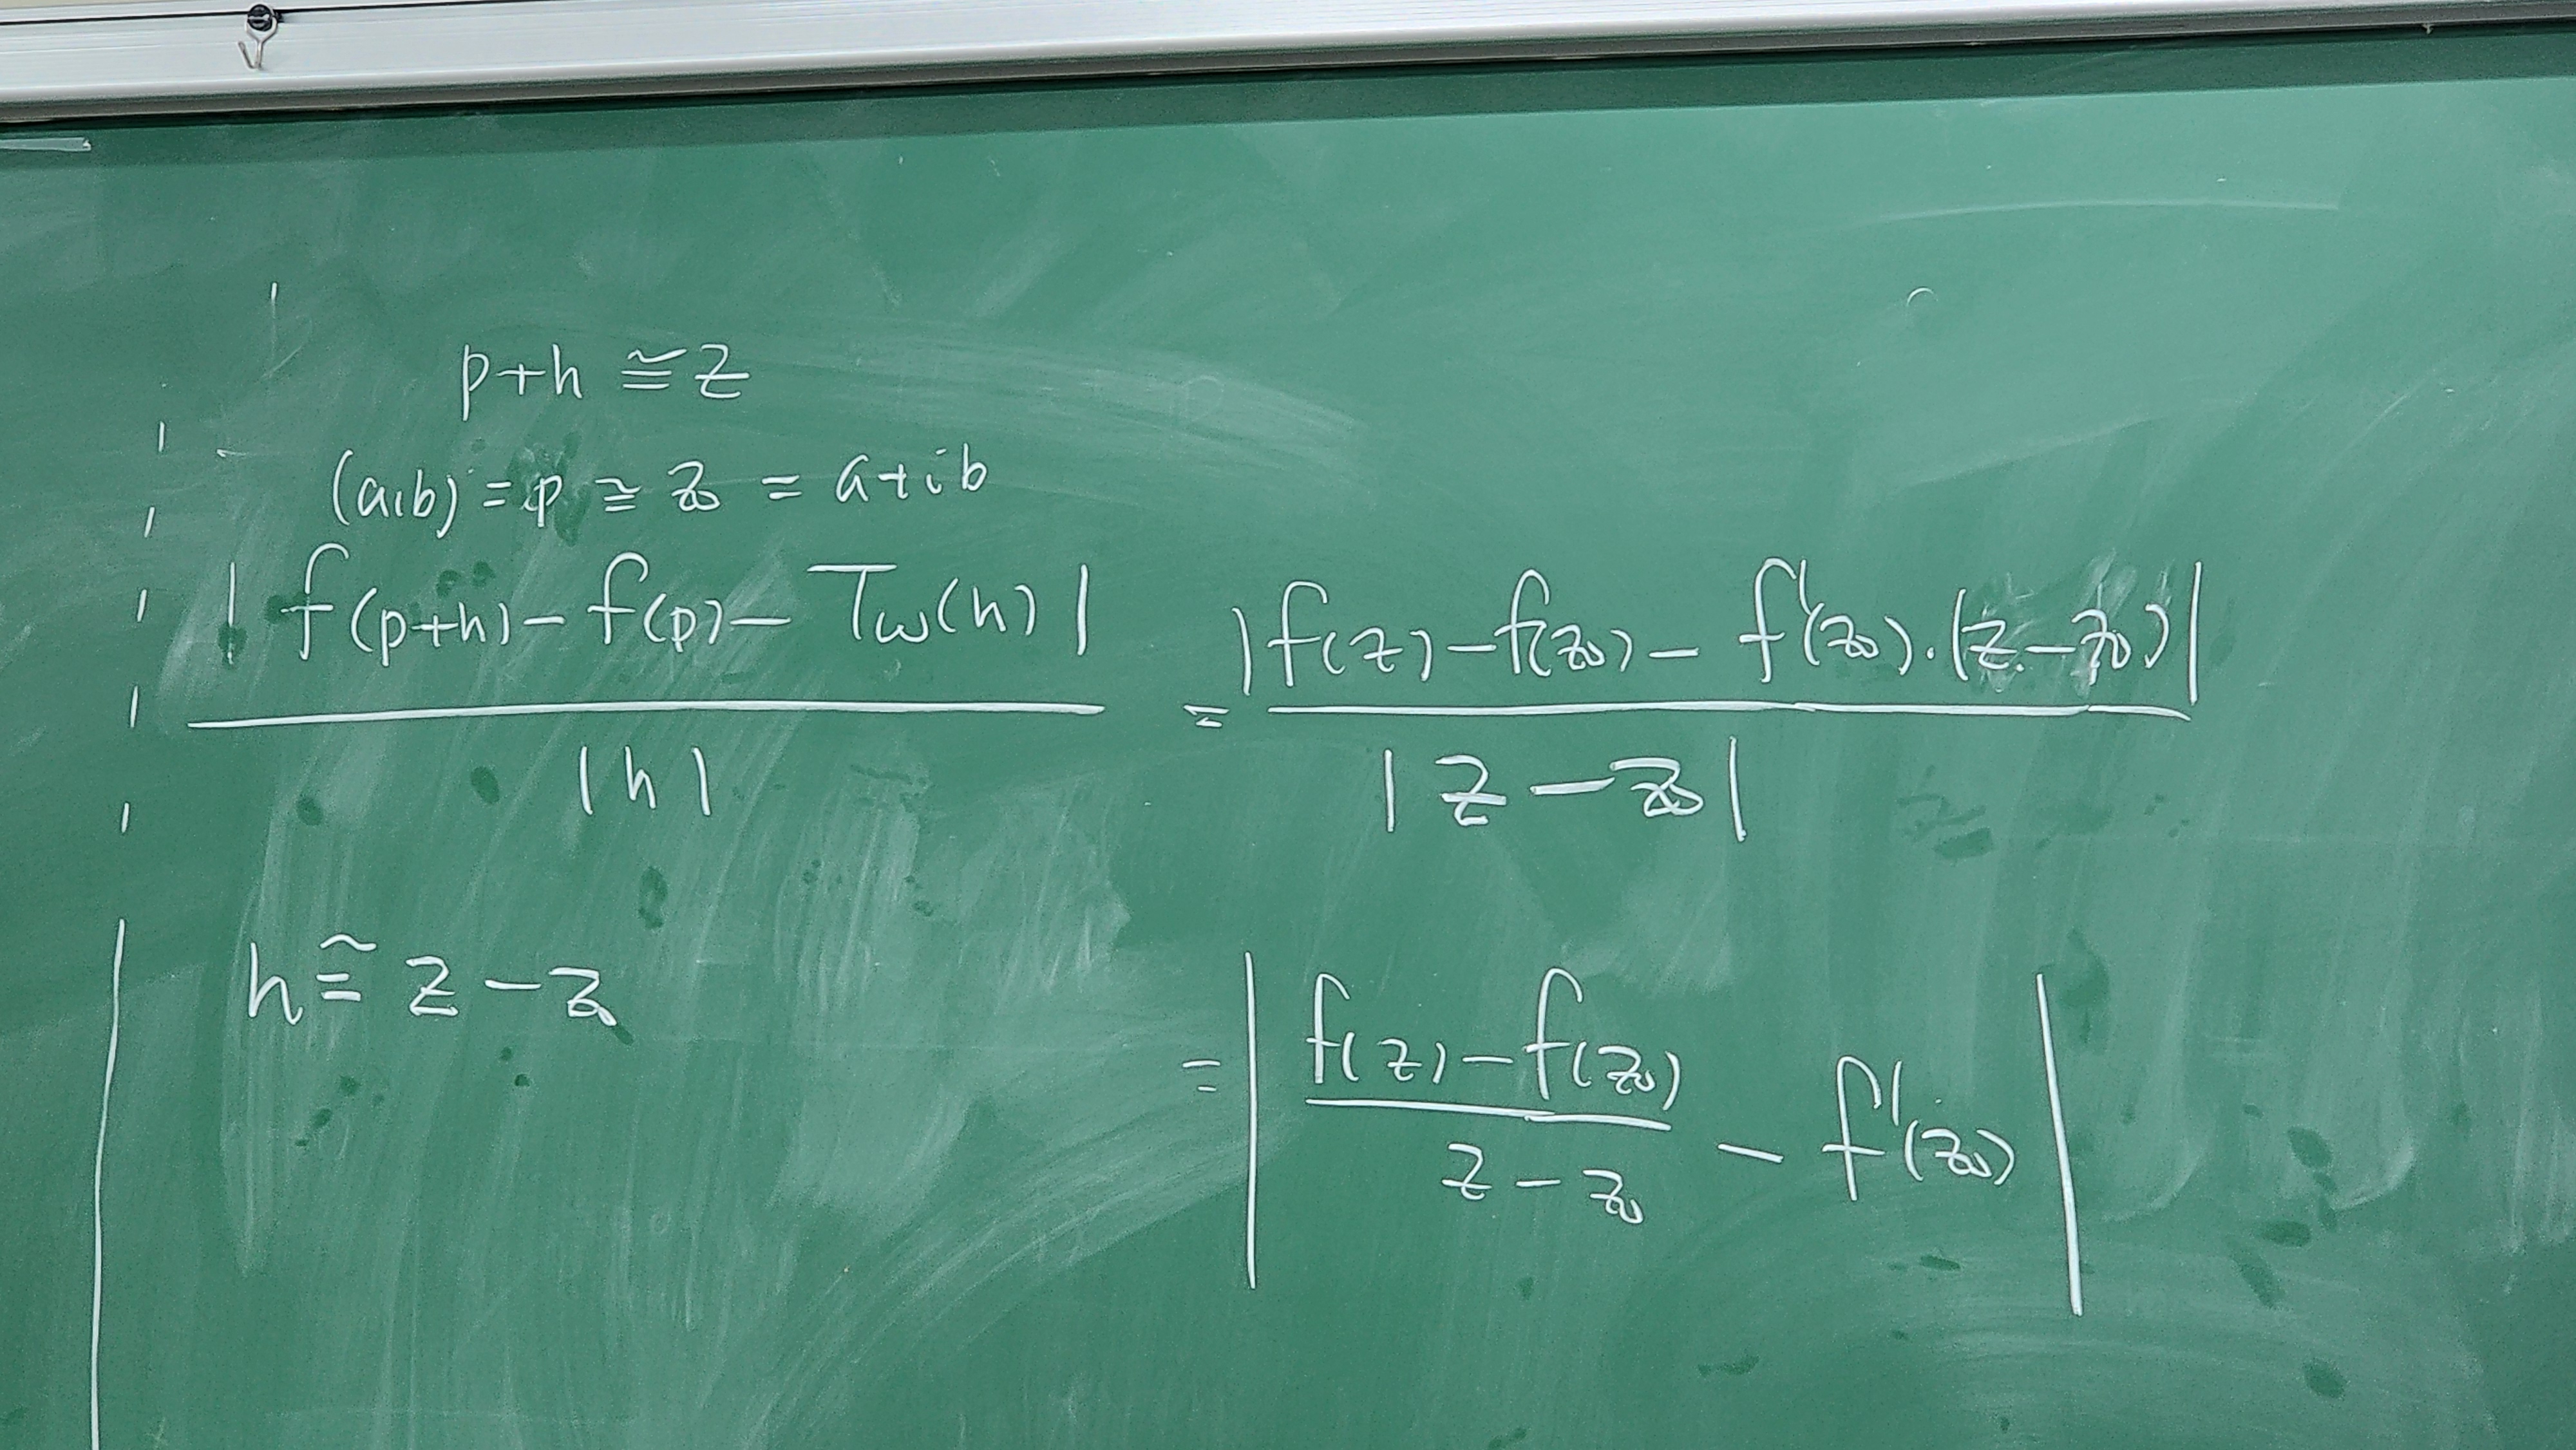 p+h ≅ z
(a,b) = p ≅ z₀ = a+ib
|f(p+h) - f(p) - T_w(h)| / |h| = |f(z) - f(z₀) - f'(z₀)·(z - z₀)| / |z - z₀|
h ≅ z - z₀
= | (f(z) - f(z₀)) / (z - z₀) - f'(z₀) |